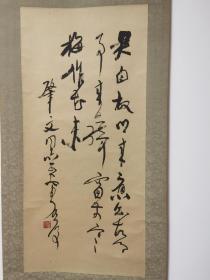 君自故鄉來應知故鄉
事來日綺窗前寒
梅花未
肇文同志